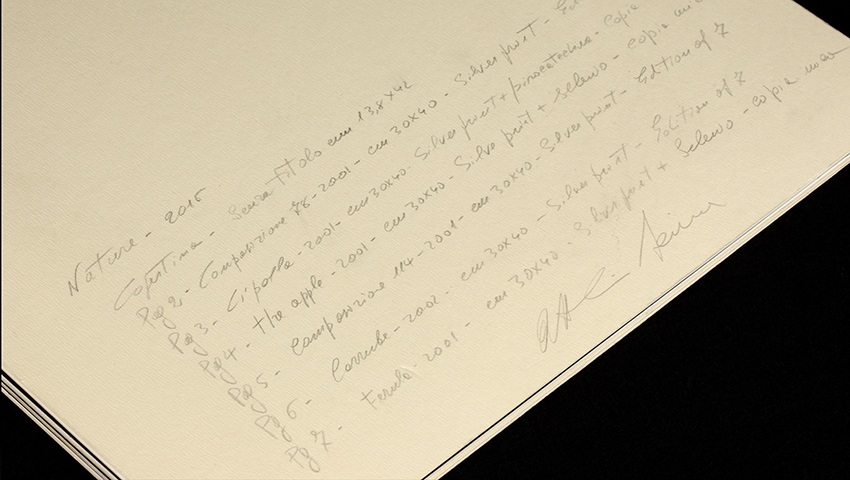 Nature - 2015
Copertina - Senza titolo cm 13,8x42
Pag 2 - Composizione 78 - 2001 - cm 30x40 - Silver print -
Pag 3 - Cipolla - 2001 - cm 30x40 - Silver print + pinacotechna - copia
Pag 4 - the apple - 2001 - cm 30x40 - Silver print + selenio - copia unica
Pag 5 - Composizione 114 - 2001 - cm 30x40 - Silver print - Edition of 7
Pg 6 - Carrube - 2002 - cm 30x40 - Silver print - Edition of 7
Pg 7 - Ferula - 2001 - cm 30x40 - Silver print + Selenio - copia unica